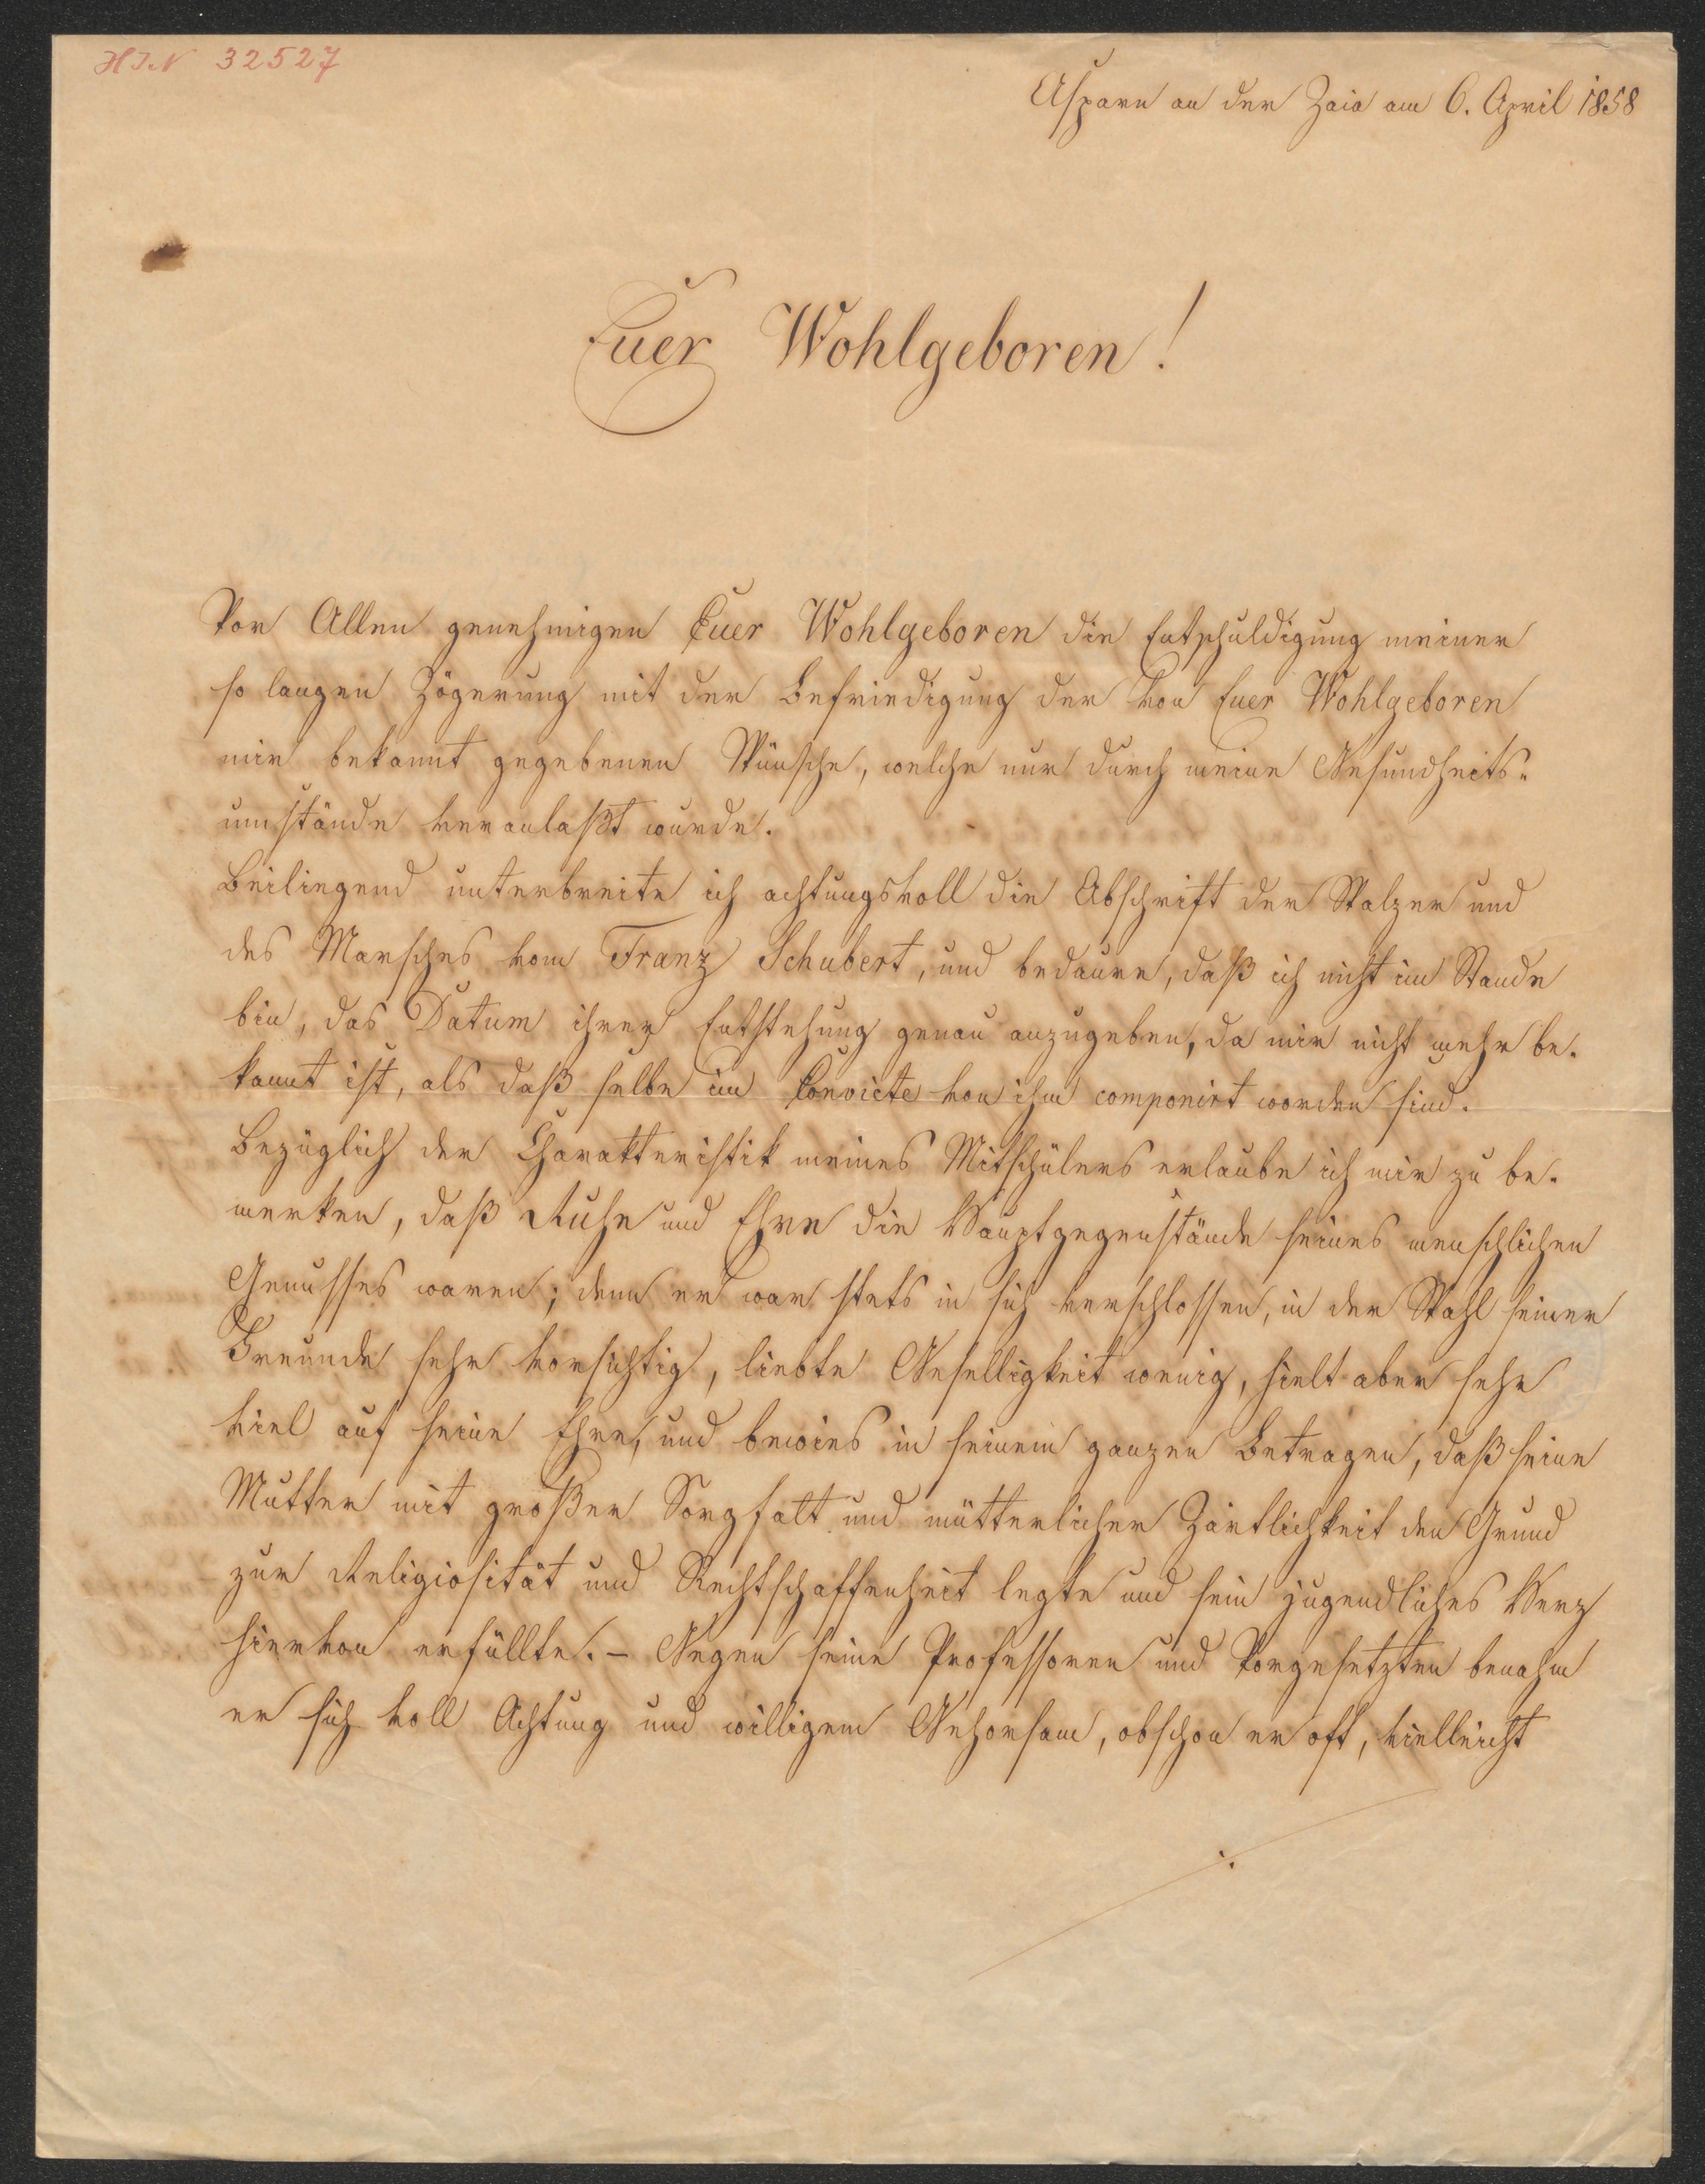 HIN 32527
Asparn an der Zaia am 6. April 1858
Euer Wohlgeboren!
Vor Allen genehmigen Euer Wohlgeboren die Entschuldigung meiner
so langen Zögerung mit der Befriedigung der von Euer Wohlgeboren
mir bekannt gegebenen Wünsche, welche nur durch meine Gesundheits-
umstände veranlaßt wurde.
Beiliegend unterbreite ich achtungsvoll die Abschrift der Walzer und
des Marsches vom Franz Schubert, und bedaure, daß ich nicht im Stande
bin, das Datum ihrer Entstehung genau anzugeben, da mir nicht mehr be-
kannt ist, als daß selbe im Convicte von ihm componirt worden sind.
Bezüglich der Charakteristik meines Mitschülers erlaube ich mir zu be-
merken, daß Ruhe und Ehre die Hauptgegenstände seines menschlichen
Genusses waren; denn er war stets in sich verschlossen, in der Wahl seiner
Freunde sehr vorsichtig, liebte Geselligkeit wenig, hielt aber sehr
viel auf seine Ehre, und bewies in seinem ganzen Betragen, daß seine
Mutter mit großer Sorgfalt und mütterlicher Zärtlichkeit den Grund
zur Religiosität und Rechtschaffenheit legte und sein jugendliches Herz
hiervon erfüllte. – Gegen seine Professoren und Vorgesetzten benahm
er sich voll Achtung und willigem Gehorsam, obschon er oft, vielleicht